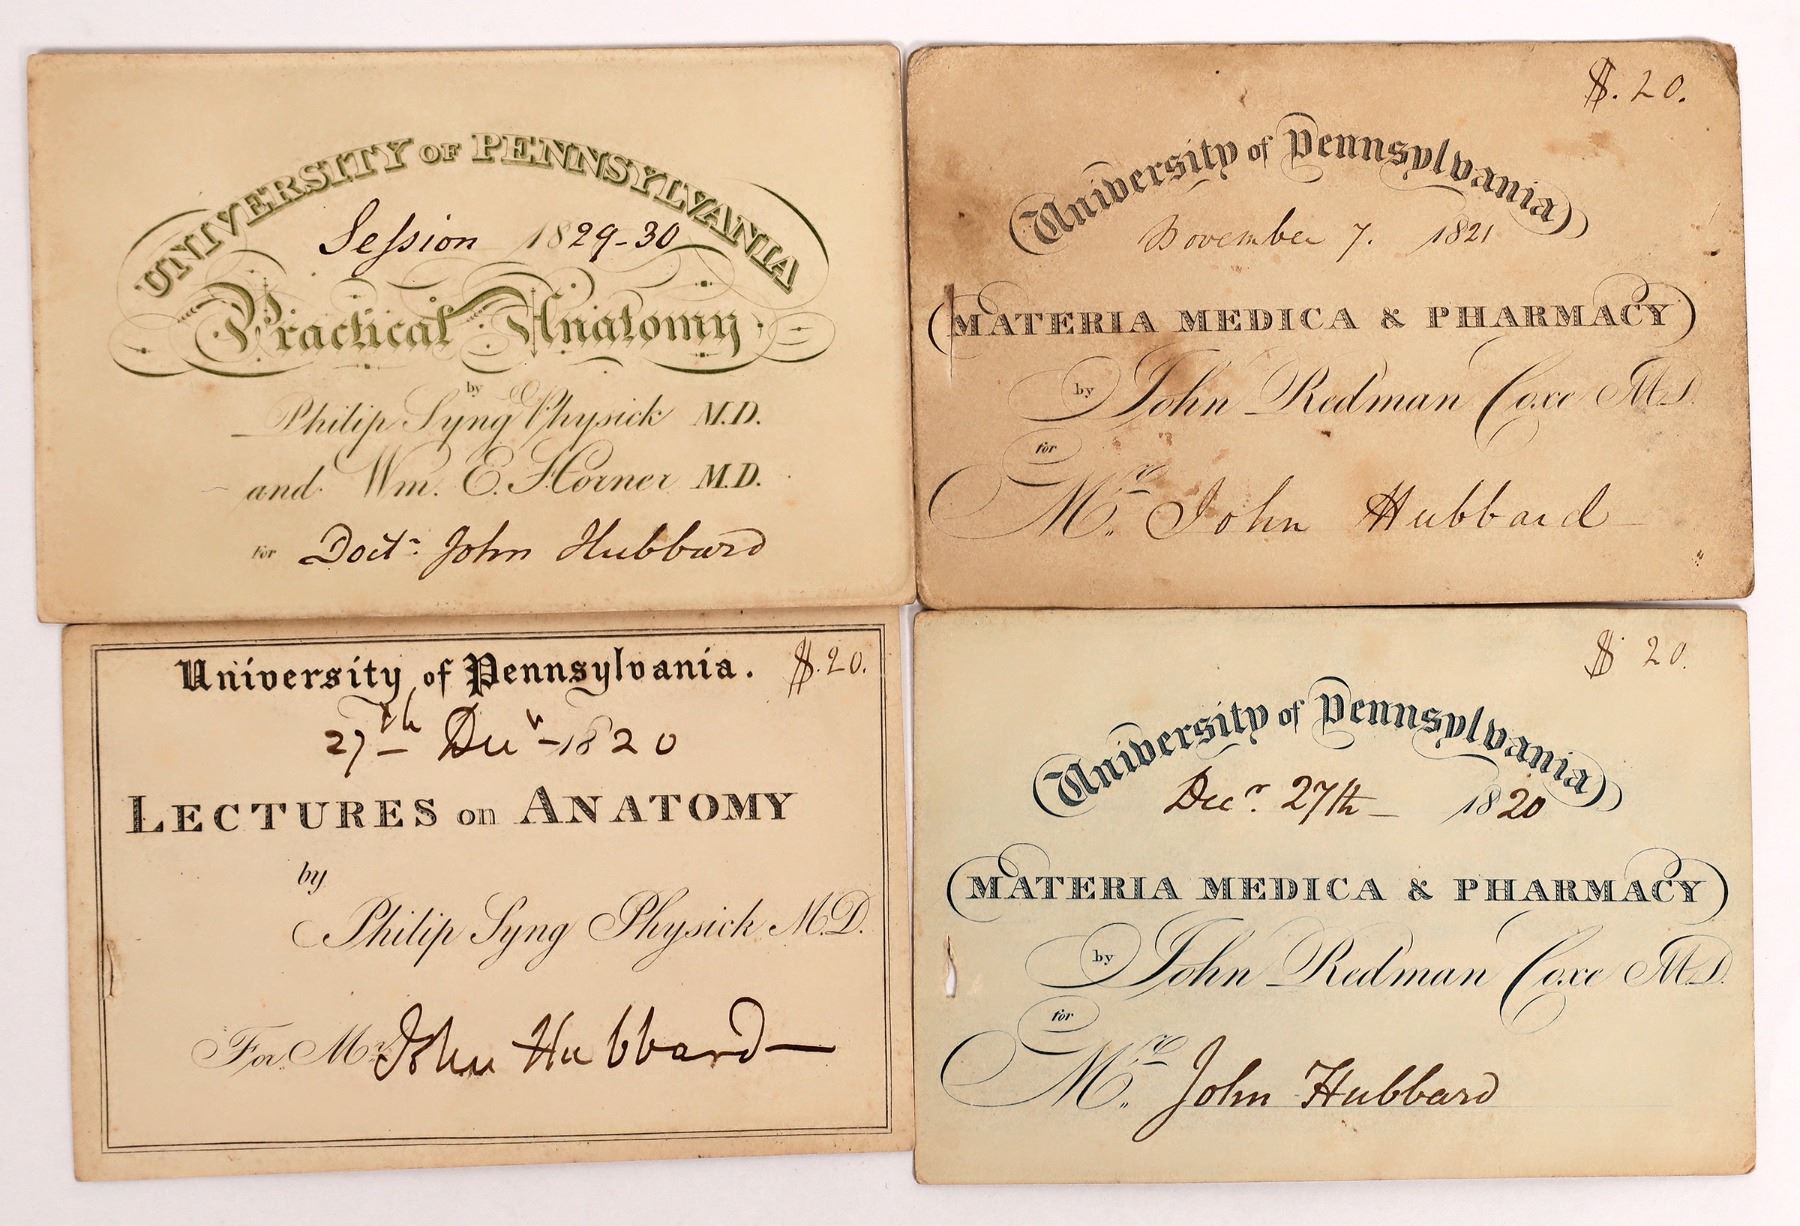 UNIVERSITY OF PENNSYLVANIA
Session 1829-30
Practical Anatomy
by
Philip Syng Physick M.D.
and Wm. E. Horner M.D.
for Doctr John Hubbard
$.20.
University of Pennsylvania
November 7. 1821
MATERIA MEDICA & PHARMACY
by John Redman Coxe M.D.
for
Mr. John Hubbard
University of Pennsylvania. $.20.
27th Decr 1820
LECTURES on ANATOMY
by
Philip Syng Physick M.D.
For Mr. John Hubbard
$ 20.
University of Pennsylvania
Decr. 27th 1820
MATERIA MEDICA & PHARMACY
by John Redman Coxe M.D.
for
Mr. John Hubbard